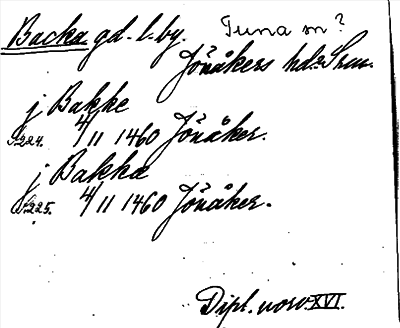 Backa gd. l. by. Tuna sn?
Jönåkers hd. Srm.
j Bakke
s. 224. 4/11 1460 Jönåker.
j Bakka
s. 225. 4/11 1460 Jönåker.
Dipl. norv. XVI.